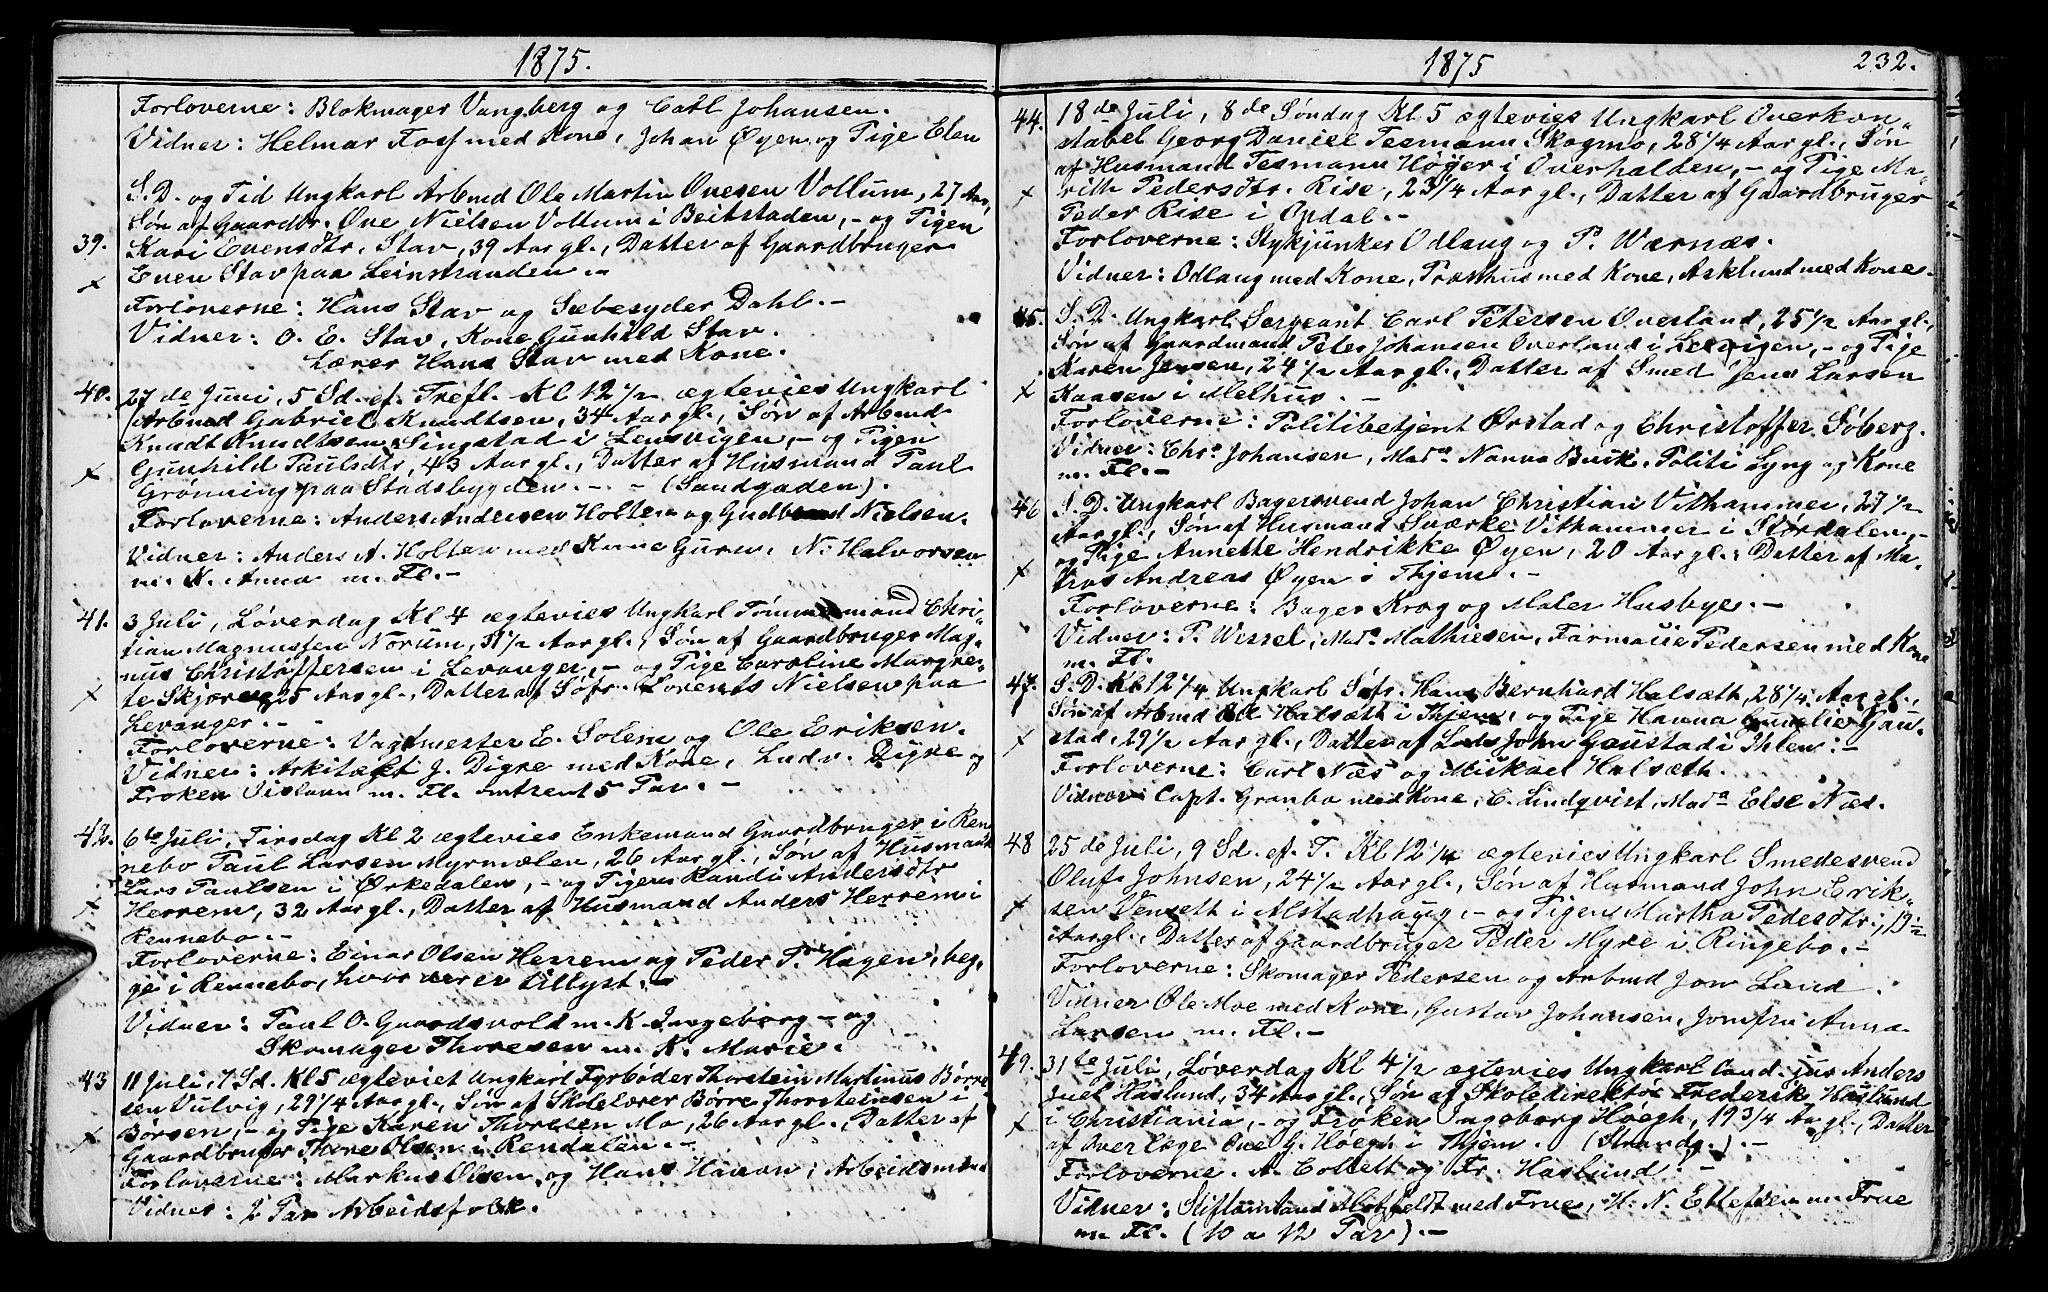 1875.
Forloverne: Blokmager Vangberg og Carl Johansen.
Vidner: Helmar Foss med Kone, Johan Øyen og Pige Elen
S. D. og Tid Ungkarl Arbmd Ole Martin Ovesen Vollum, 27 Aar,
Søn af Gaardbr. Ove Nielsen Vollum i Beitstaden, – og Pigen
39. Kari Evensdtr. Stav, 39 Aar gl., Datter af Gaardbruger
Even Stav paa Leinstranden. –
Forloverne: Hans Stav og Sæbesyder Dahl. –
Vidner: O. E. Stav, Kone Gunhild Stav.
Lærer Hans Stav med Kone.
40. 27de Juni, 5 Sd. ef. Trefl. Kl 12 1/2 ægtevies Ungkarl
Arbmd Gabriel Knudtsen, 34 Aar gl., Søn af Arbmd
Knudt Knudtsen Singstad i Lensvigen, – og Pigen
Gunhild Paulsdtr, 43 Aar gl., Datter af Husmand Paul
Grønning paa Stadsbygden. – – (Sandgaden).
Forloverne: Anders Andersen Holten og Gudbrand Nielsen.
Vidner: Anders A. Holten med Kone Guren, N. Halvorsen
m. K. Anna m. Fl. –
41. 3 Juli, Løverdag Kl 4 ægtevies Ungkarl Tømmermand Chri-
stian Magnussen Norum, 31 1/2 Aar gl., Søn af Gaardbruger Mag-
nus Christoffersen i Levanger, – og Pige Caroline Margre-
te Skjerve, 25 Aar gl., Datter af Søfr. Lorents Nielsen paa
Levanger. –
Forloverne: Vagtmester E. Solem og Ole Eriksen.
Vidner: Arkitækt J. Digre med Kone, Ludv. Digre og
Frøken m. Fl. omtrent 5 Par. –
42. 6te Juli, Tirsdag Kl 2 ægtevies Enkemand Gaardbruger i Ren-
nebo Paul Larsen Myrmælen, 26 Aar gl., Søn af Husmand
Lars Paulsen i Ørkedalen, – og Pigen Randi Andersdtr
Herrem, 32 Aar gl., Datter af Husmand Anders Herrem i
Rennebo. –
Forloverne: Einar Olsen Herrem og Peder P. Hagen, beg-
ge i Rennebo, hvor der er tillyst. –
Vidner: Paul O. Gaardsvold m. K. Ingeborg – og
Skomager Thoresen m. K. Marie.
43 11 Juli, 7 Sd. Kl 5 ægteviet Ungkarl Fyrbøder Thorstein Martinus Børre-
sen Vulvig, 29 1/4 Aar gl., Søn af Skolelærer Børre Thorstensen i
Børsen, – og Pige Karen Thoresen Mo, 26 Aar gl., Datter af
Gaardbruger Thore Olsen i Rendalen. –
Forloverne: Markus Olsen og Hans Hanson, Arbeidsmænd
Vidner: 2 Par Arbeidsfolk.
1875
232.
44. 18de Juli, 8de Søndag Kl 5 ægtevies Ungkarl Overkon-
stabel Georg Daniel Tesmann Skogmo, 28 1/4 Aar gl., Søn
af Husmand Tesmann Høyer i Overhalden, – og Pige Ma-
rith Pedersdtr. Rise, 23 1/4 Aar gl., Datter af Gaardbruger
Peder Rise i Opdal. –
Forloverne: Stykjunker Odlaug og P. Wærnæs.
Vidner: Odlaug med Kone, Præsthus med Kone, Asklund med Kone.
45. S. D. Ungkarl Sergeant Carl Petersen Overland, 25 1/2 Aar gl.,
Søn af Gaardmand Peter Johansen Overland i Lexvigen, – og Pige
Karen Jensen, 24 1/2 Aar gl., Datter af Smed Jens Larsen
Kaasen i Melhus. –
Forloverne: Politibetjent Ørstad og Christoffer Søberg.
Vidner: Chr. Johansen, Mada Nanna Buck, Politi Lyng og Kone
m. Fl. –
46 S. D. Ungkarl Bagersvend Johan Christian Vithammer, 27 1/2
Aar gl., Søn af Husmand Sværke Vithammer i Størdalen, –
og Pige Annette Hendrikke Øyen, 20 Aar gl., Datter af Ma-
tros Andreas Øyen i Thjem. –
Forloverne: Bager Krog og Maler Husbye. –
Vidner: P. Wessel, Mada Mathiesen, Farmacie Pedersen med Kone
m. Fl.
47. S. D. Kl 12 1/4 Ungkarl Søfr. Hans Bernhard Halsæth, 28 1/4 Aar gl.,
Søn af Arbmd Ole Halsæth i Thjem, og Pige Hanna Gau-
stad, 29 1/2 Aar gl., Datter af Lods John Gaustad i Ihlen. –
Forloverne: Carl Næs og Mickael Halsæth.
Vidner: Capt. Granbo med Kone, C. Lindqvist, Mada Else Næs.
48 25de Juli, 9 Sd. ef. T. Kl 12 1/4 ægtevies Ungkarl Smedesvend
Oluf Johnsen, 24 1/2 Aar gl., Søn af Husmand John Erik-
sen Venseth i Alstadhaug, – og Pigen Martha Pedersdtr.,
Aar gl., Datter af Gaardbruger Peder Myre i Ringebo. –
Forloverne: Skomager Pedersen og Arbmd Jon Lund.
Vidner Ole Moe med Kone, Gustav Johansen, Jomfru Anna
Larsen m. Fl. –
49. 31te Juli, Løverdag Kl 4 1/2 ægtevies Ungkarl Cand. jur Anders
Juel Haslund, 34 Aar gl., Søn af Skoledirektør Frederik Haslund
i Christiania, – og Frøken Ingeborg Høegh, 19 3/4 Aar gl., Datter
af Overlæge Ove G. Høegh i Thjem. (Strandg.). –
Forloverne. A. Collett og Fr. Haslund. –
Vidner: Stiftamtmand Motzfeldt med Frue, H. N. Ellefsen m Frue
m. Fl. (10 a 12 Par). –